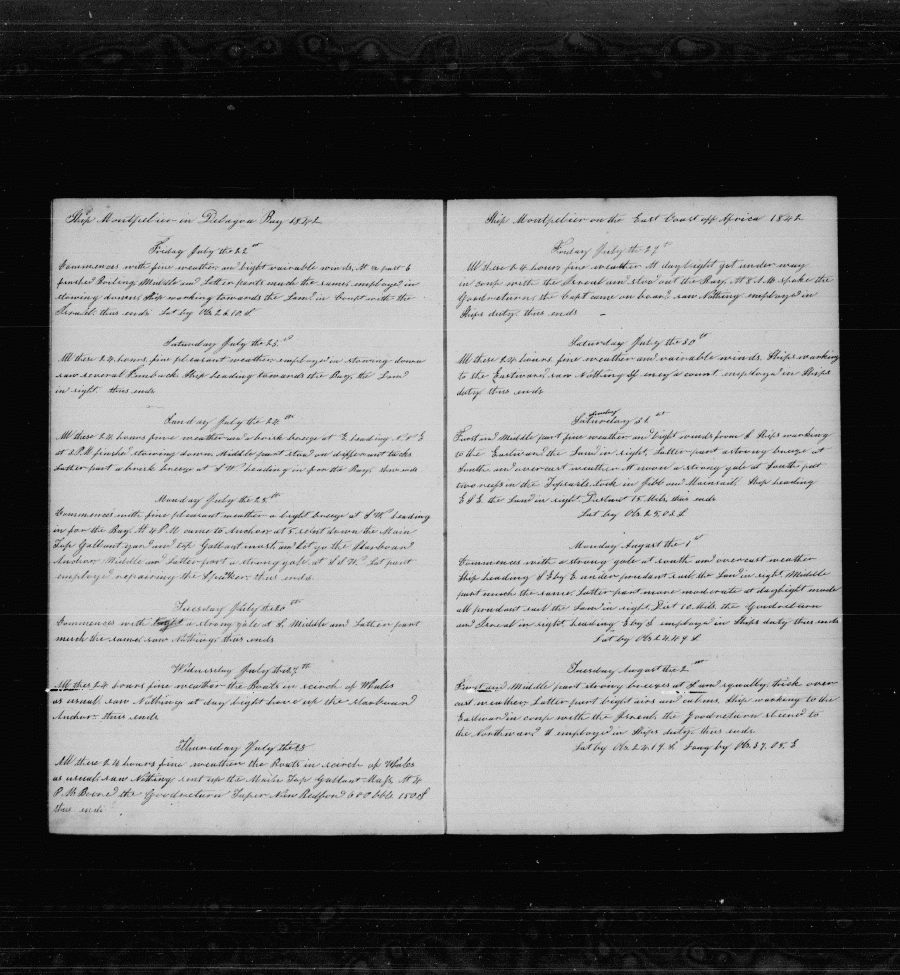 Ship Montpelier in Delagoa Bay 1842
Friday July the 22nd
Commences with fine weather and light vairable winds At a part 6
finished Boiling Middle and Latter parts much the same employed in
stowing down Ship working towards the Land in Comp with the
thus ends Lat by Obs 26.10 S
Saturday July the 23rd
All these 24 hours fine pleasant weather employed in stowing down
saw several Finback Ship heading towards the Bay the Land
in sight thus ends
Sunday July the 24th
All these 24 hours fine weather and a brisk breeze at E heading N N E
at 2 P.M finished stowing down Middle part stood on different tacks
Latter part a brisk breeze at S W heading in for the Bay thus ends
Monday July the 25th
Commences with fine pleasant weather a light breeze at S W heading
in for the Bay At 4 P.M came to Anchor at 5 sent down the Main
Top Gallant yard and top Gallant mast and let go the Starboard
Anchor Middle and Latter part a strong gale at S S W Lat part
employd repairing the Spanker thus ends
Tuesday July the 26th
Commences with a strong gale at S, Middle and Latter part
much the same saw Nothing thus ends
Wednesday July the 27th
All thes 24 hours fine weather the Boats in serch of Whales
as usual saw Nothing at day light hove up the Starboard
Anchor thus ends
Thursday July the 28
All these 24 hours fine weather the Boats in serch of Whales
as usual saw Nothing sent up the Main Top Gallant Mast At 4
P.M Bored the Goodreturn New Bedford 600 bbls 150 S
thus ends
Ship Montpelier on the East Coast off Africa 1842
Friday July the 29th
All these 24 hours fine weather At daylight got under way
in comp with the and stood out the Bay At 8 A.M spoke the
Goodreturn the Capt came on board saw Nothing employed in
Ships duty thus ends
Saturday July the 30th
All these 24 hours fine weather and vairable winds Ship working
to the Eastward saw Nothing of eney acount employd in Ships
duty thus ends
Sunday
Saturday 31st
Furst and Middle part fine weather and light winds from S Ships working
to the Eastward the Land in sight Latter part a strong breeze at
South and overcast weather At noon a strong gale at South put
two reefs in the Topsails took in Jibb and Mainsail Ship heading
E S E the Land in sight Distant 15 Mils thus ends
Lat by Obs 25.03 S
Monday August the 1st
Commences with a strong gale at south and overcast weather
Ship heading S E by E under prudant sail the Land in sight Middle
part much the same Latter part more moderate at daylight made
all prudant sail the Land in sight Dist 10 Mils the Goodreturn
and in sight heading E by S employd in Ships duty thus ends
Lat by Obs 24.49 S
Tuesday August the 2nd
Furst and Middle part strong breezes at S and squally thick over
cast weather Latter part light airs and calms Ship working to the
Eastward in comp with the the Goodreturn steerd to
the Northward employed in Ships duty thus ends
Lat by Obs 24.19 S Long by Obs 37.05 E